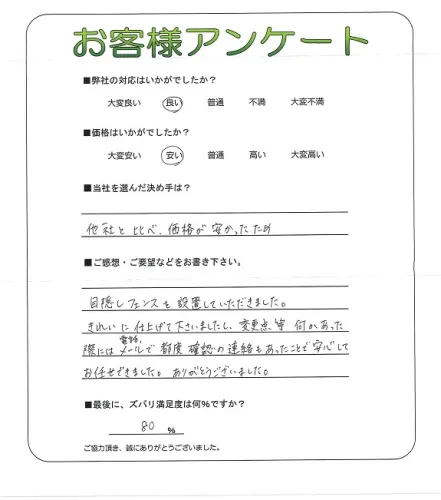 お客様アンケート
■弊社の対応はいかがでしたか?
大変良い 良い 普通 不満 大変不満
■価格はいかがでしたか?
大変安い 安い 普通 高い 大変高い
■当社を選んだ決め手は?
他社と比べ、価格が安かったため
■ご感想・ご要望などをお書き下さい。
目隠しフェンスを設置していただきました。
きれいに仕上げて下さいましたし、変更点等何かあった
際には電話、メールで都度確認の連絡もあったことで安心して
お任せできました。ありがとうございました。
■最後に、ズバリ満足度は何%ですか?
80 %
ご協力頂き、誠にありがとうございました。